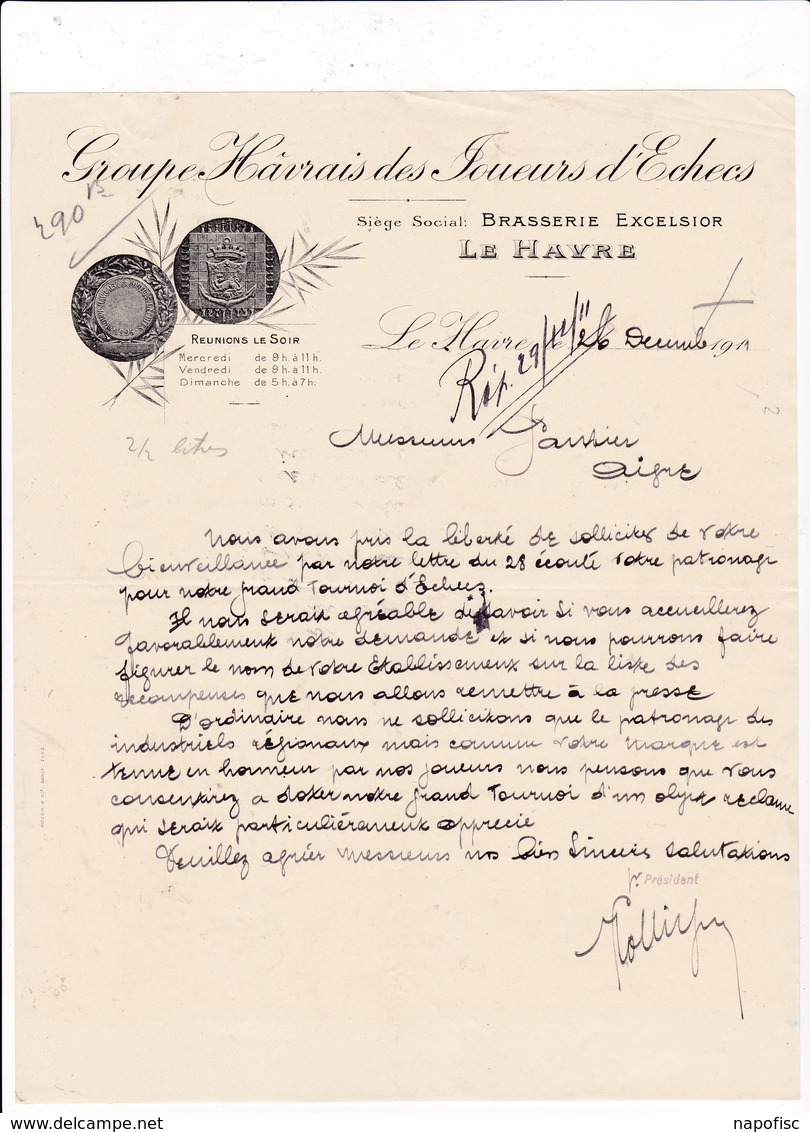 Groupe Hâvrais des Joueurs d'Echecs
290
Siège Social: BRASSERIE EXCELSIOR
LE HAVRE
REUNIONS LE SOIR
Mercredi de 9h. à 11h.
Vendredi de 9h. à 11h.
Dimanche de 5h. à 7h.
Le Havre, le 26 Decemb 1911
Rép. 29/12/11
2/2 litres
Messieurs Gautier
Aigre
Nous avons pris la liberté de solliciter de votre
bienveillance par notre lettre du 28 écoulé votre patronage
pour notre grand Tournoi d'Echecs.
Il nous serait agréable de savoir si vous accueillerez
favorablement notre demande et si nous pourrons faire
figurer le nom de votre Etablissement sur la liste des
recompenses que nous allons remettre à la presse
D'ordinaire nous ne sollicitons que le patronage des
industriels régionaux mais comme votre marque est
tenue en honneur par nos joueurs nous pensons que vous
consentirez a doter notre grand Tournoi d'un objet reclame
qui serait particuliérement apprecié
Veuillez agréer Messieurs nos bien sincères salutations
Pr Président
napofisc